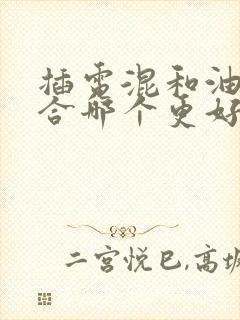 插电混和油
合哪个更好
二宫悦巳,高坂